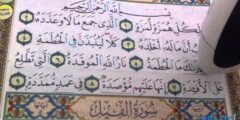 بِسْمِ اللَّهِ الرَّحْمَٰنِ الرَّحِيمِ
لِكُلِّ هُمَزَةٍ لُمَزَةٍ ١ الَّذِي جَمَعَ مَالًا وَعَدَّدَهُ ٢
أَنَّ مَالَهُ أَخْلَدَهُ ٣ كَلَّا لَيُنْبَذَنَّ فِي الْحُطَمَةِ ٤
الْحُطَمَةُ ٥ نَارُ اللَّهِ الْمُوقَدَةُ ٦ الَّتِي تَطَّلِعُ
عَلَى الْأَفْئِدَةِ ٧ إِنَّهَا عَلَيْهِمْ مُؤْصَدَةٌ ٨ فِي عَمَدٍ مُمَدَّدَةٍ ٩
سُورَةُ الْفِيلِ